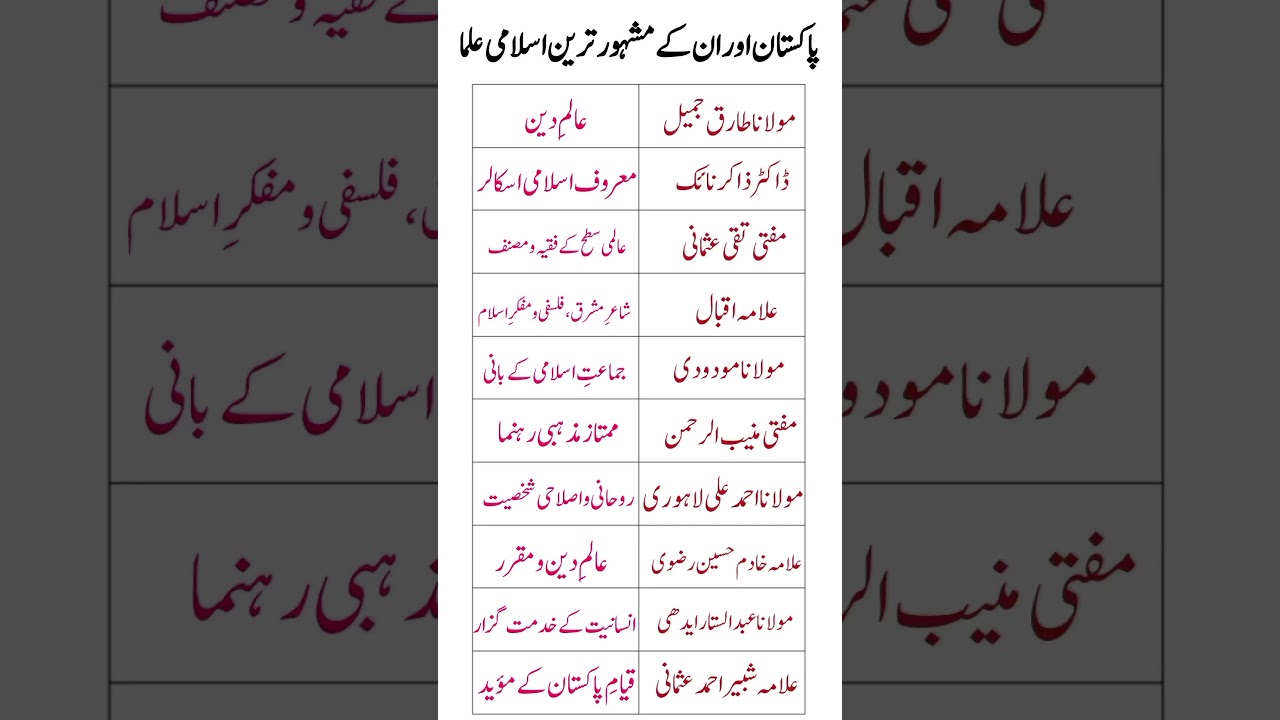 پاکستان اور ان کے مشہور ترین اسلامی علما
مولانا طارق جمیل عالمِ دین
ڈاکٹر ذاکر نائک معروف اسلامی اسکالر
مفتی تقی عثمانی عالمی سطح کے فقیہ و مصنف
علامہ اقبال شاعرِ مشرق، فلسفی و مفکرِ اسلام
مولانا مودودی جماعتِ اسلامی کے بانی
مفتی منیب الرحمن ممتاز مذہبی رہنما
مولانا احمد علی لاہوری روحانی و اصلاحی شخصیت
علامہ خادم حسین رضوی عالمِ دین و مقرر
مولانا عبدالستار ایدھی انسانیت کے خدمت گزار
علامہ شبیر احمد عثمانی قیامِ پاکستان کے مؤید